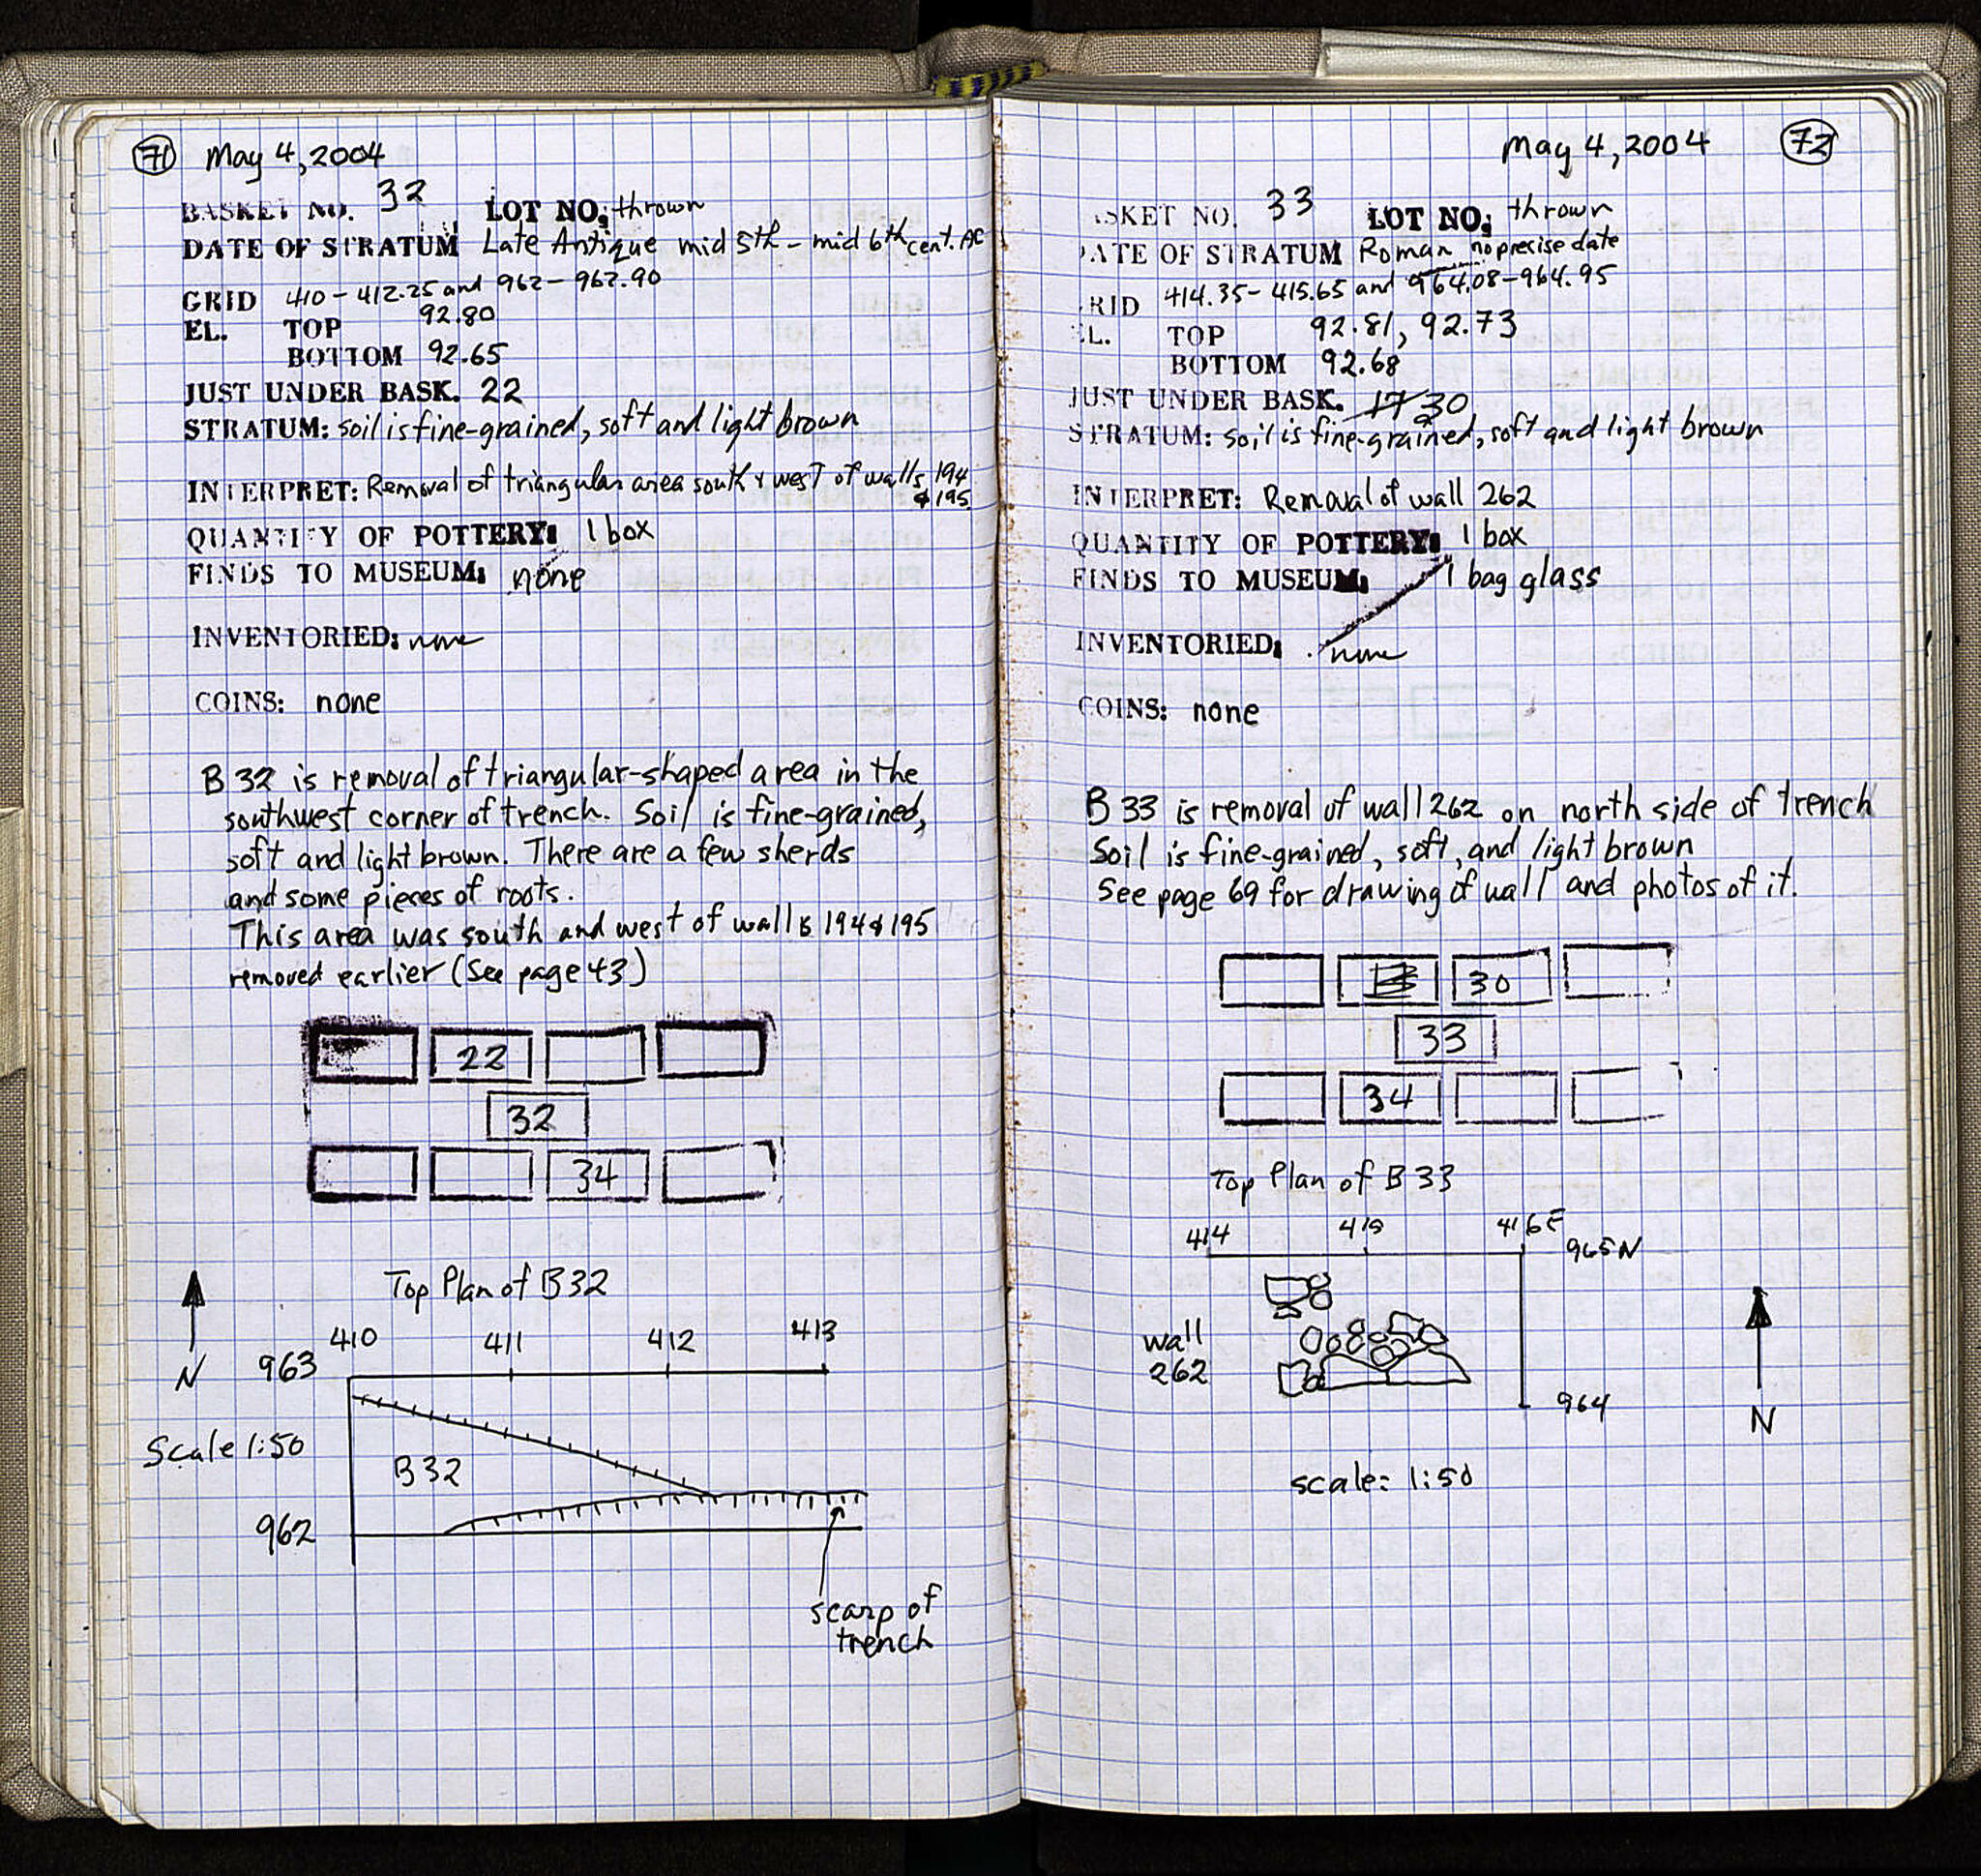 71 May 4, 2004
BASKET NO. 32 LOT NO: thrown
DATE OF STRATUM Late Antique mid 5th - mid 6th cent. AC
GRID 410 - 412.25 and 962 - 962.90
EL. TOP 92.80
BOTTOM 92.65
JUST UNDER BASK. 22
STRATUM: soil is fine-grained, soft and light brown
INTERPRET: Removal of triangular area south & west of walls 194
& 195.
QUANTITY OF POTTERY: 1 box
FINDS TO MUSEUM: none
INVENTORIED: none
COINS: none
B 32 is removal of triangular-shaped area in the
southwest corner of trench. Soil is fine-grained,
soft and light brown. There are a few sherds
and some pieces of roots.
This area was south and west of walls 194 & 195
removed earlier (See page 43)
22
32
34
Top Plan of B32
410 411 412 413
963
N
Scale 1:50
B32
962
scarp of
trench
May 4, 2004 72
BASKET NO. 33 LOT NO: thrown
DATE OF STRATUM Roman no precise date
GRID 414.35 - 415.65 and 964.08 - 964.95
EL. TOP 92.81, 92.73
BOTTOM 92.68
JUST UNDER BASK. 17 30
STRATUM: soil is fine-grained, soft and light brown
INTERPRET: Removal of wall 262
QUANTITY OF POTTERY: 1 box
FINDS TO MUSEUM: 1 bag glass
INVENTORIED: none
COINS: none
B 33 is removal of wall 262 on north side of trench
Soil is fine-grained, soft, and light brown
See page 69 for drawing of wall and photos of it.
30
33
34
Top Plan of B 33
414 415 416 E
965 N
wall
262
964
N
scale: 1:50